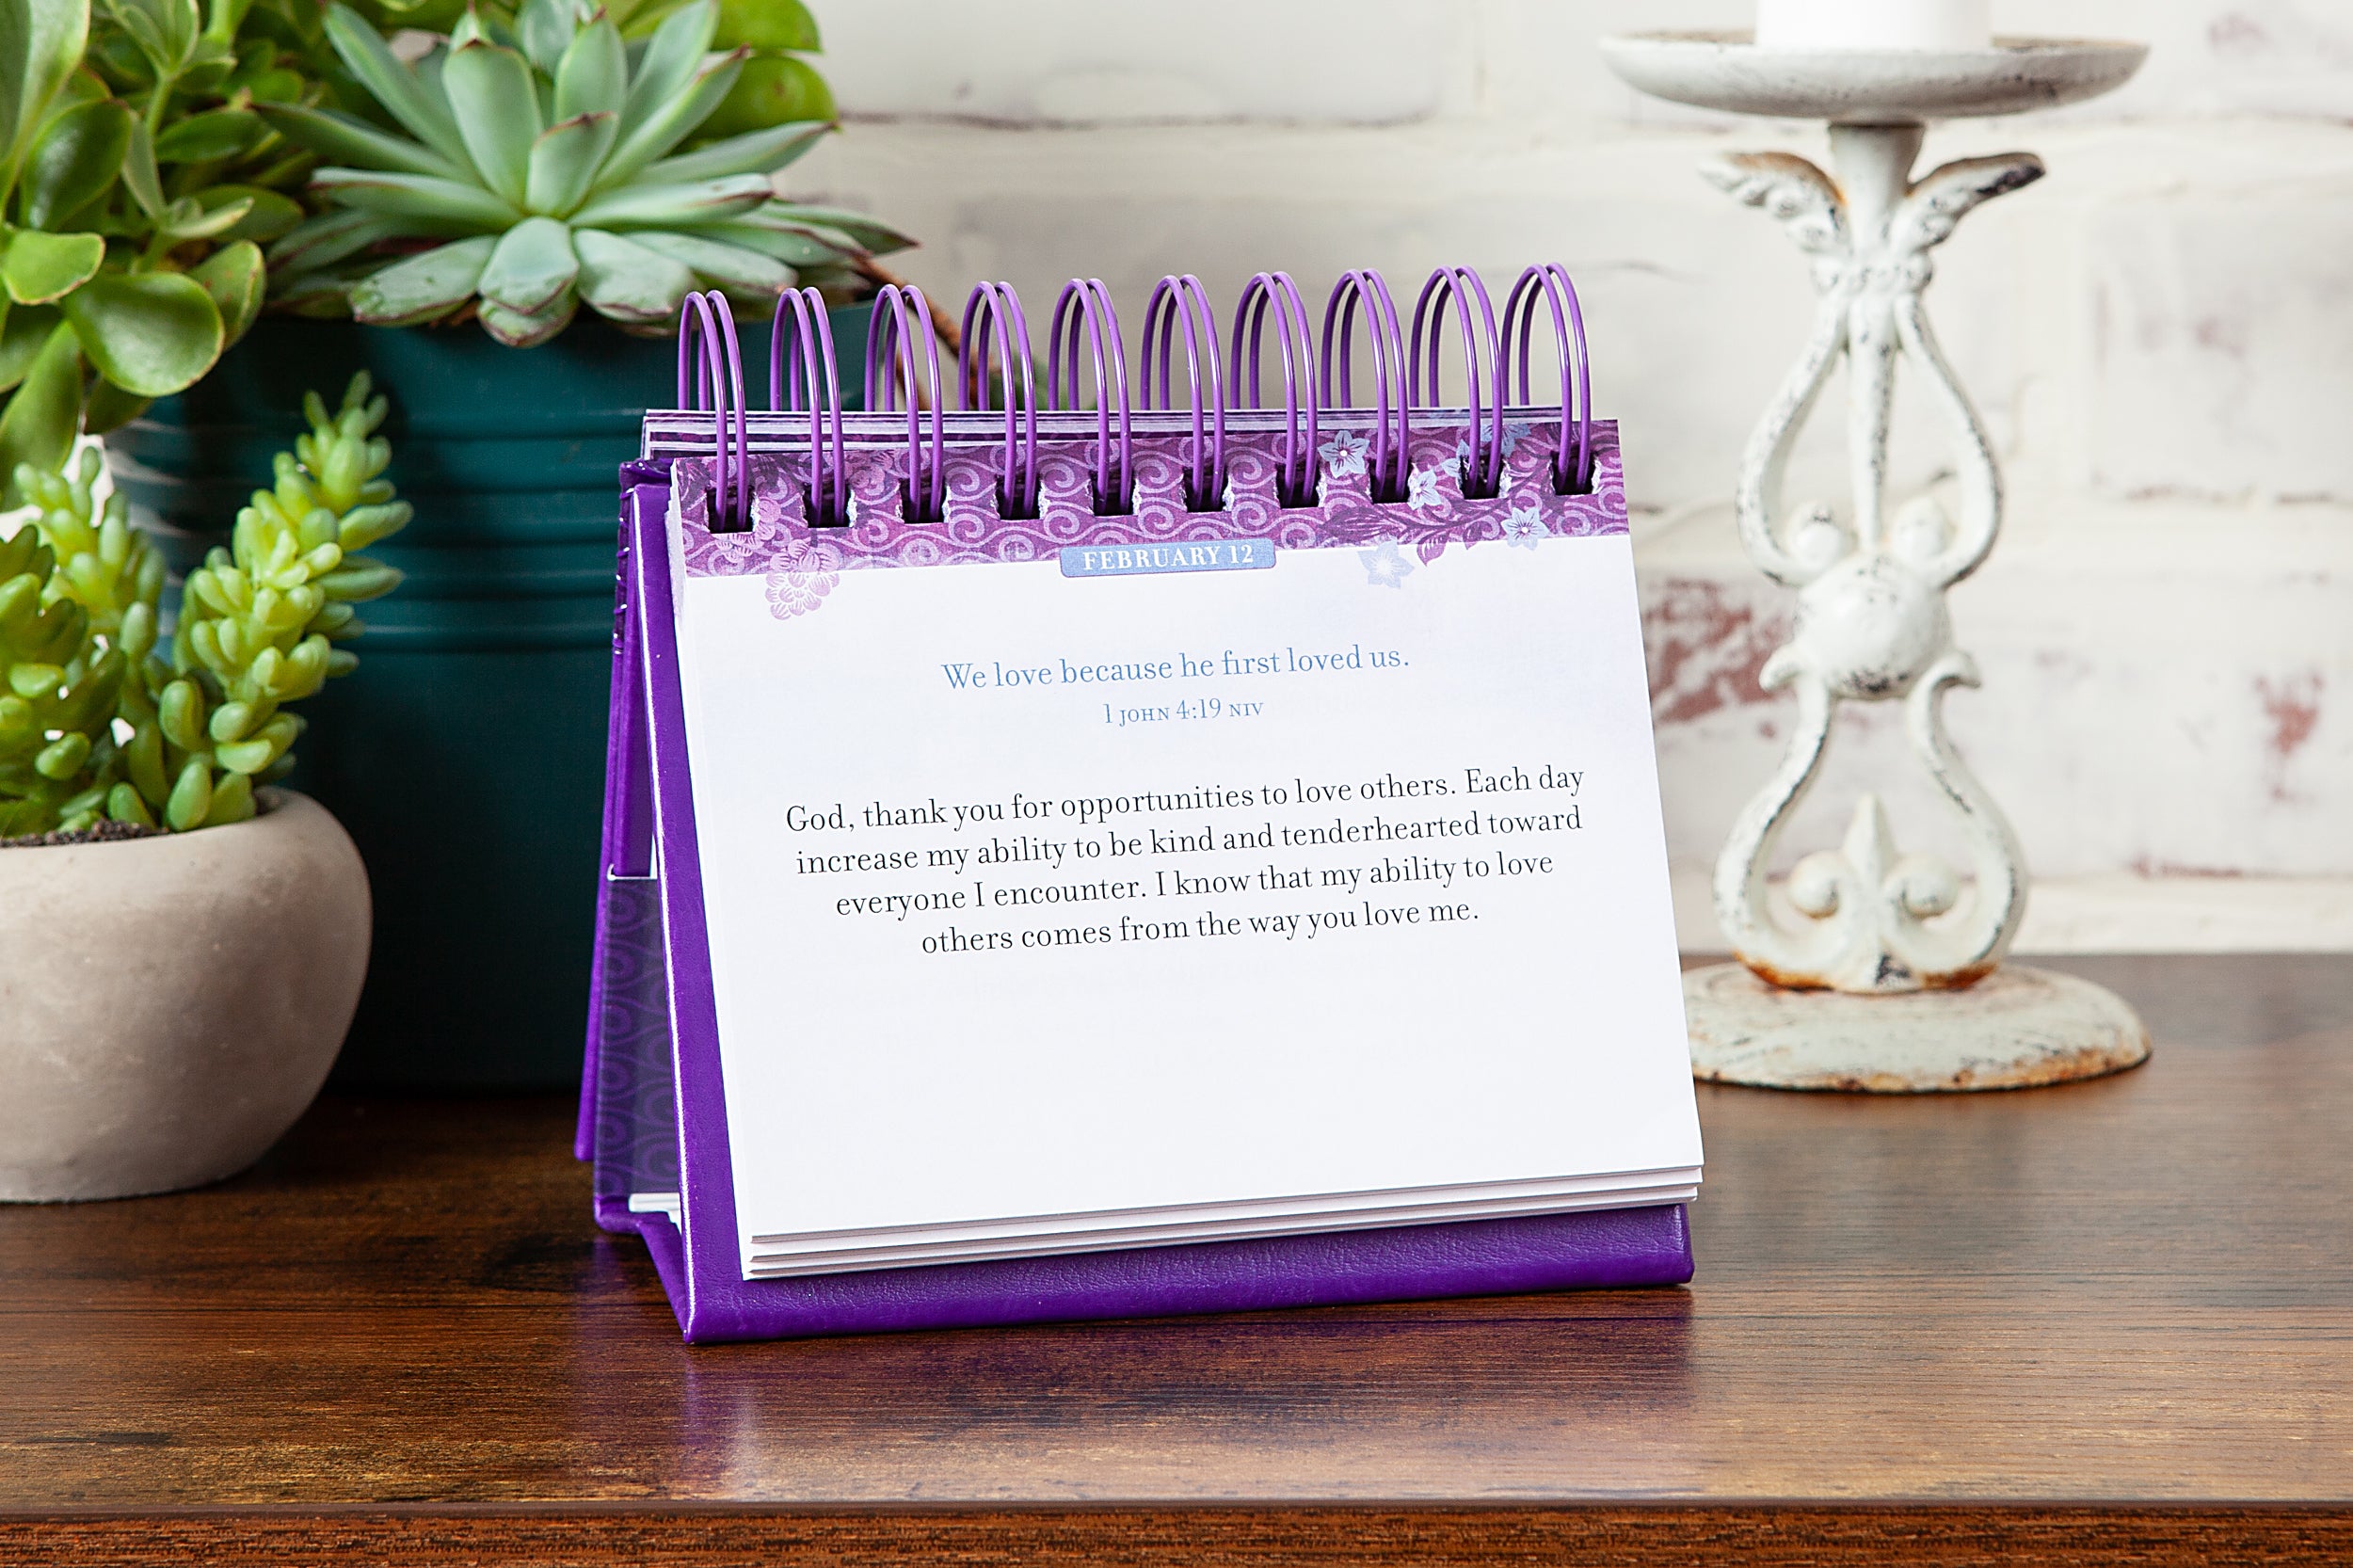 FEBRUARY 12
We love because he first loved us.
1 JOHN 4:19 NIV
God, thank you for opportunities to love others. Each day
increase my ability to be kind and tenderhearted toward
everyone I encounter. I know that my ability to love
others comes from the way you love me.